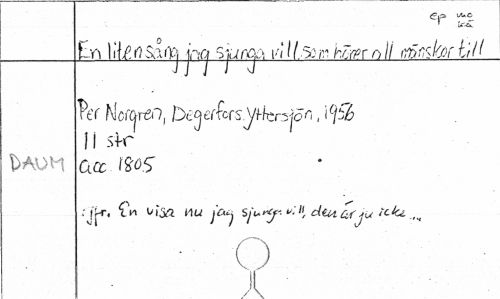 ep me
kä
En liten sång jag sjunga vill, som hörer all mänskor till
Per Norgren, Degerfors. Yttersjön, 1956
11 str
DAUM acc. 1805
jfr. En visa nu jag sjunga vill, den är ju icke...